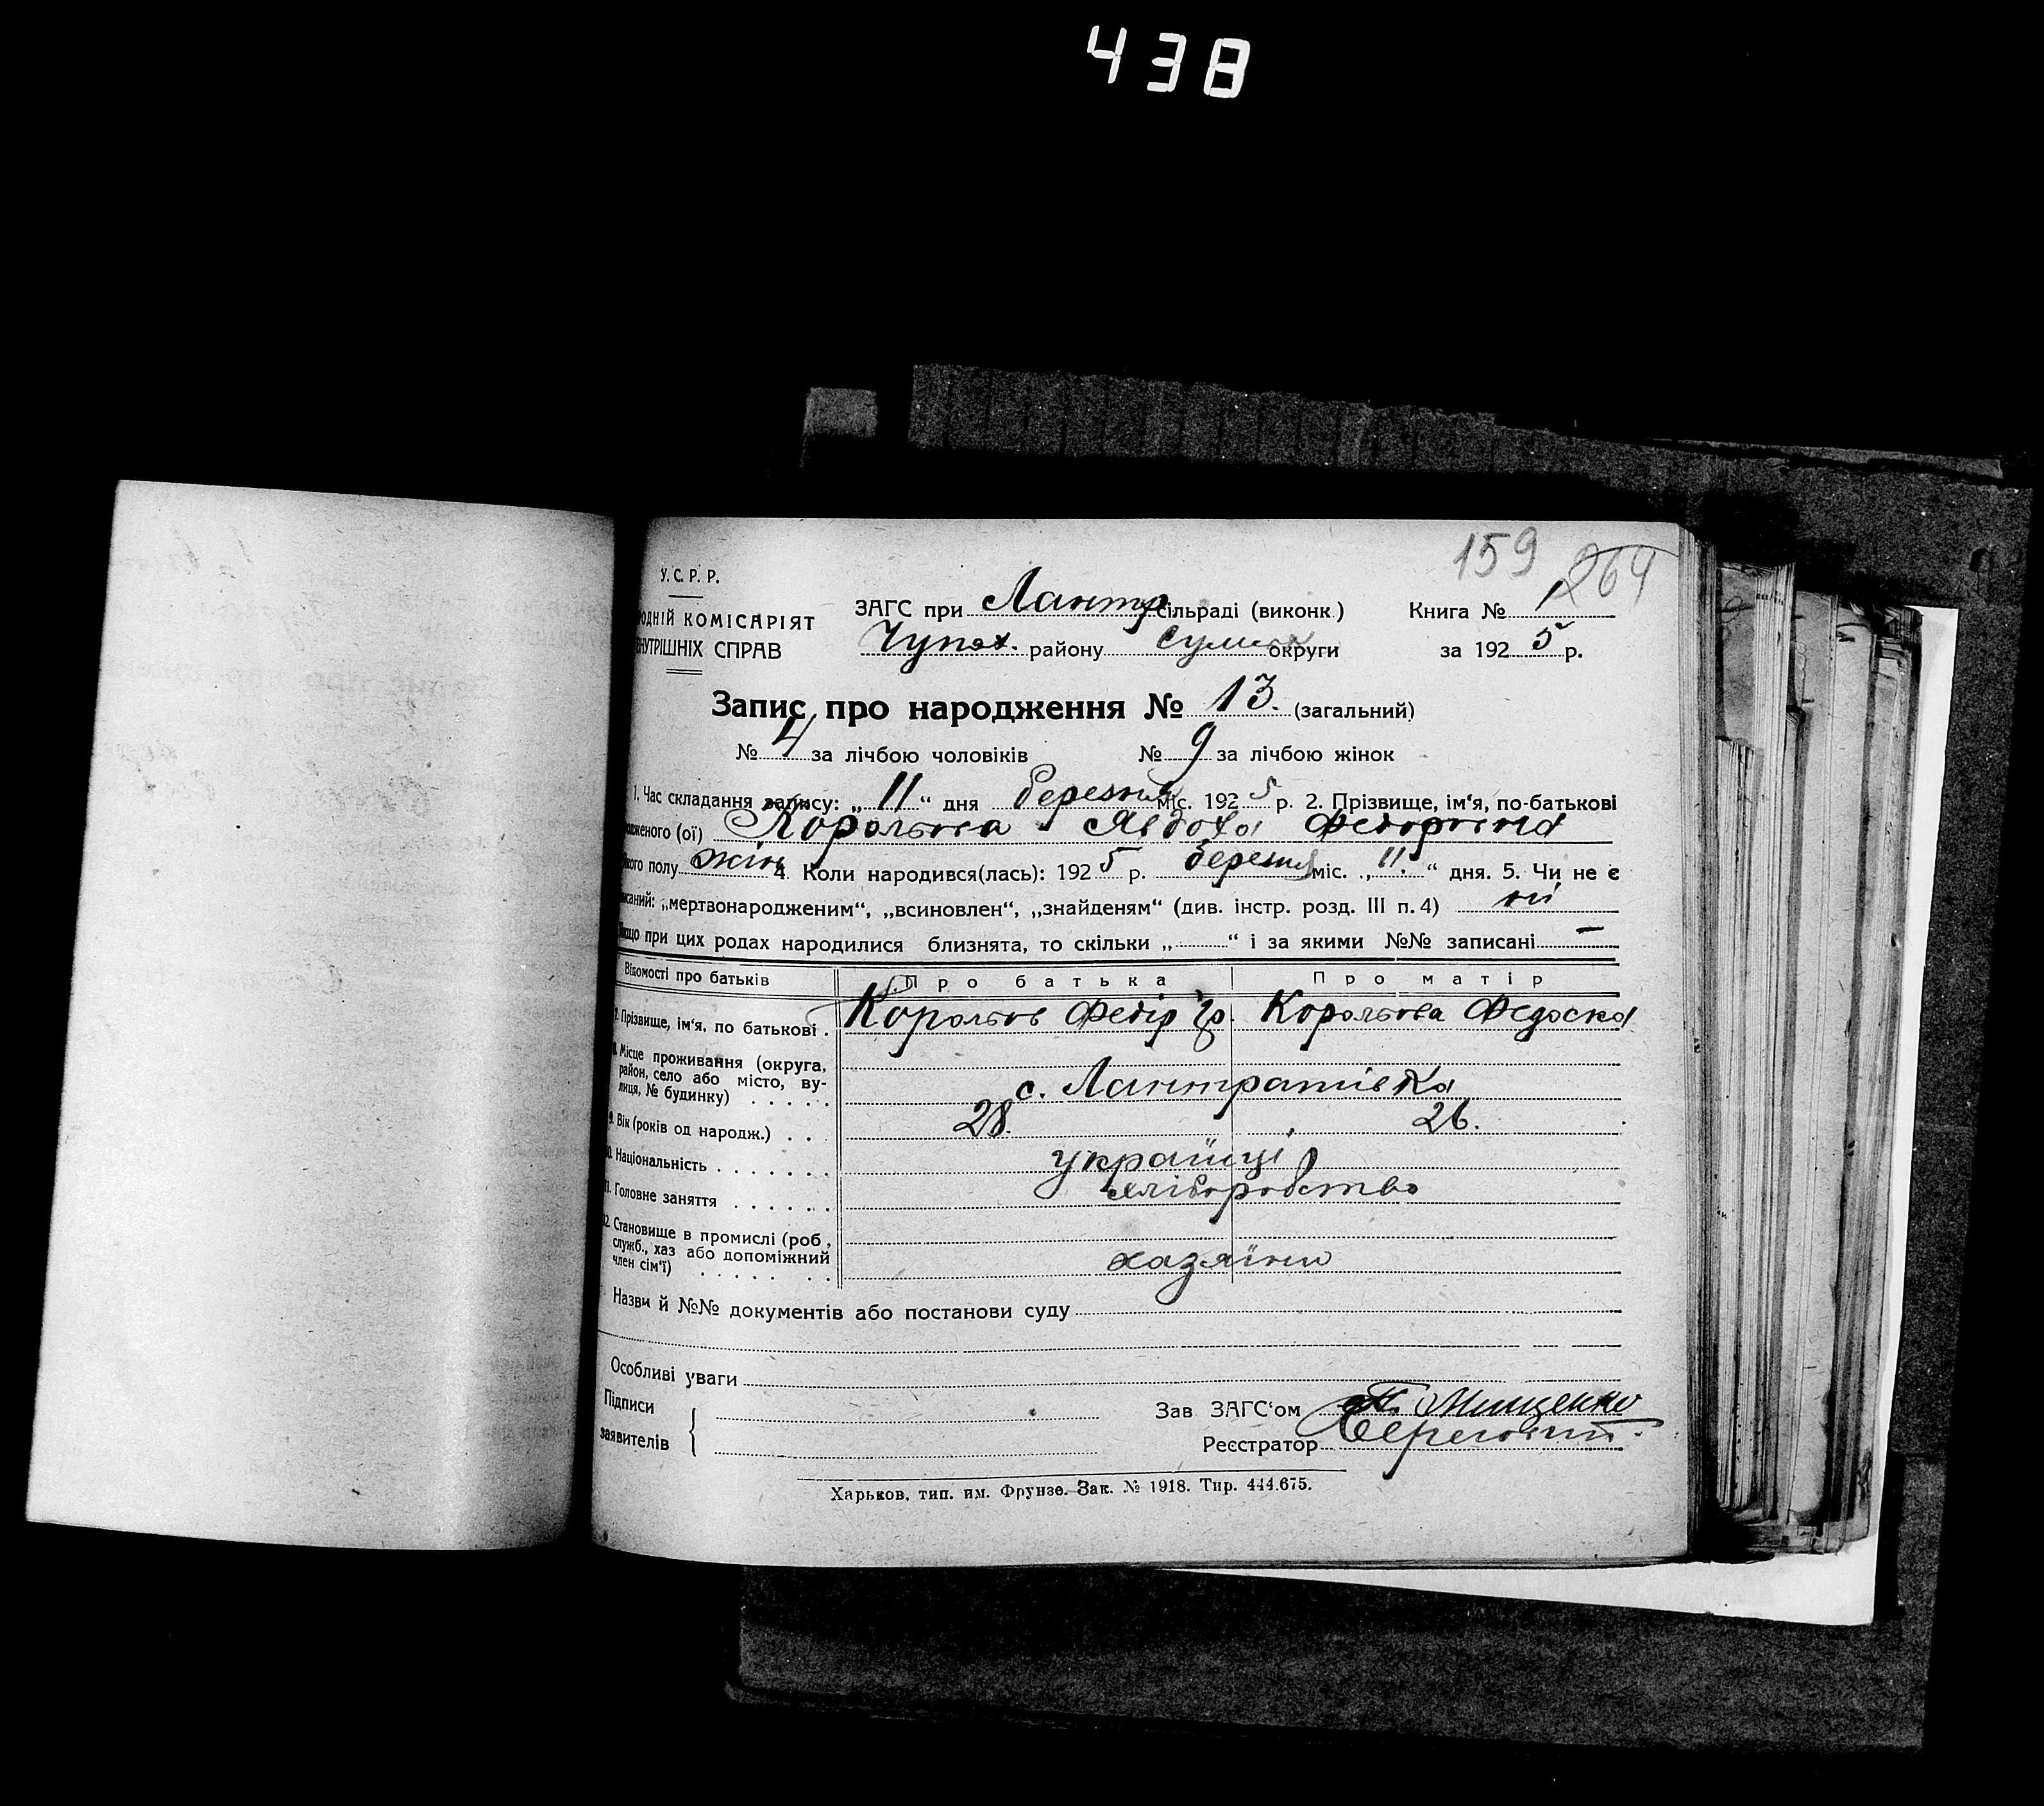 438
159 264
У. С. Р. Р.
ЗАГС при Лантр сільраді (виконк.) Книга № 1
ОДНІЙ КОМІСАРІЯТ
Чупах. району Сумськ округи за 1925 р.
НУТРІШНІХ СПРАВ
Запис про народження № 13. (загальний)
№ 4 за лічбою чоловіків № 9 за лічбою жінок
1. Час складання запису: „11“ дня березня міс. 1925 р. 2. Прізвище, ім‘я, по-батькові
дженого (ої) Корольова Явдоха Федоровна
кого полу жін 4. Коли народився(лась): 1925 р. березня міс. „11.“ дня. 5. Чи не є
исаний: „мертвонародженим“, „всиновлен“, „знайденям“ (див. інстр. розд. III п. 4) ні
кщо при цих родах народилися близнята, то скільки „......“ і за якими №№ записані —
Відомості про батьків Про батька Про матір
Прізвище, ім‘я, по батькові . Корольов Федір Гр. Корольова Федоска
Місце проживання (округа,
район, село або місто, ву-
лиця, № будинку) . . . . . с. Лантратівка
9. Вік (років од народж.) . . . 28. 26.
10. Національність . . . . . . . українці
11. Головне заняття . . . . . . хліборобство
12. Становище в промислі (роб.,
служб., хаз або допоміжний
член сім‘ї) . . . . . . . хазяїни
Назви й №№ документів або постанови суду
Особливі уваги
Підписи
заявителів
Зав ЗАГС‘ом П. Мищенко
Реєстратор
Харьков, тип. им. Фрунзе. Зак. № 1918. Тир. 444.675.